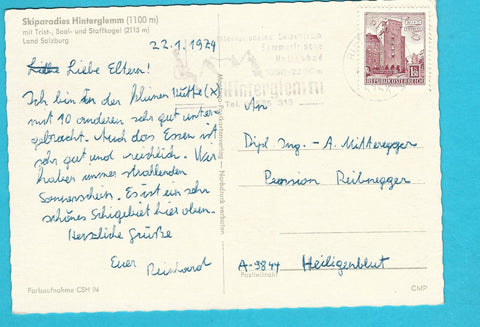 Skiparadies Hinterglemm (1100 m)
mit Trist-, Saal- und Staffkogel (2115 m)
Land Salzburg
22.1.1974
Liebe Eltern!
Ich bin in der kleinen Hütte (x)
mit 10 anderen sehr gut unter-
gebracht. Auch das Essen ist
sehr gut und reichlich. Wir
haben immer strahlenden
Sonnenschein. Es ist ein sehr
schönes Schigebiet hier oben.
Herzliche Grüße
Euer Reinhard
Farbaufnahme CSH 94
Nachdruck verboten
Internationales Skizentrum
Sommerfrische
Hallenbad
Hinterglemm
REPUBLIK ÖSTERREICH
An
Dipl. Ing. A. Mitteregger
Pension
A-9844 Heiligenblut
Postleitzahl
CMP